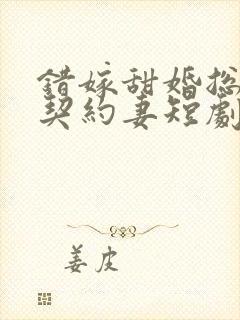 錯嫁甜婚總
契約妻短劇
姜皮